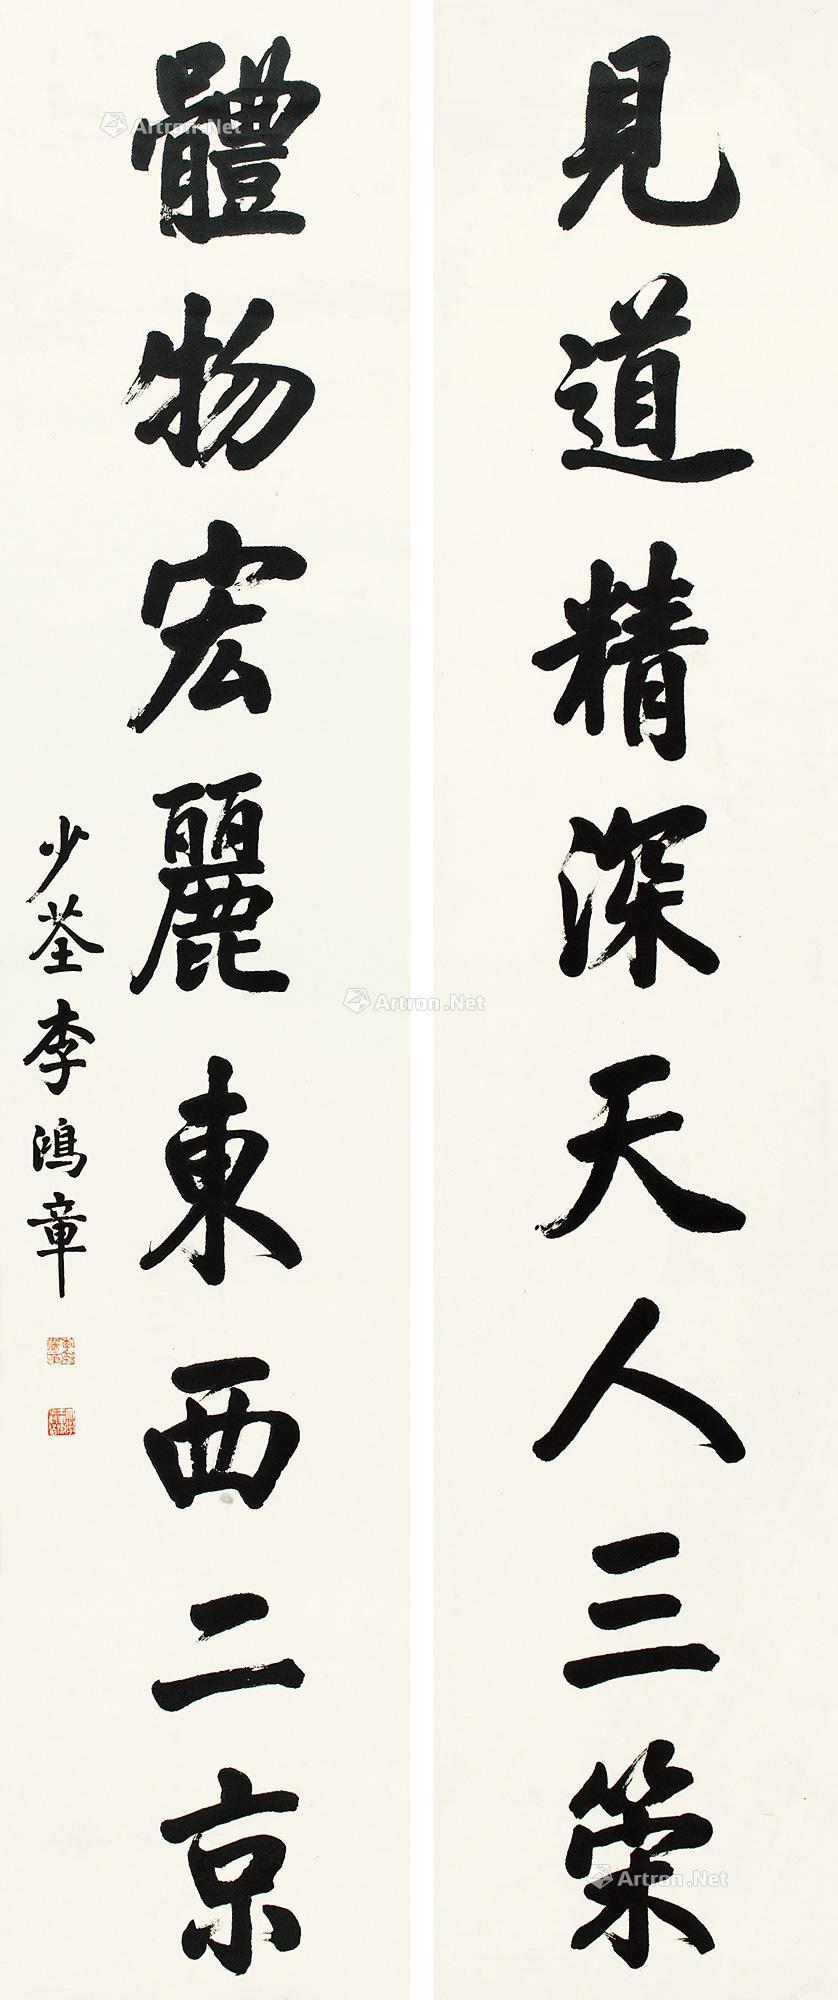 見道精深天人三策
體物宏麗東西二京
少荃李鴻章
Artron.Net
Artron.Net
Artron.Net